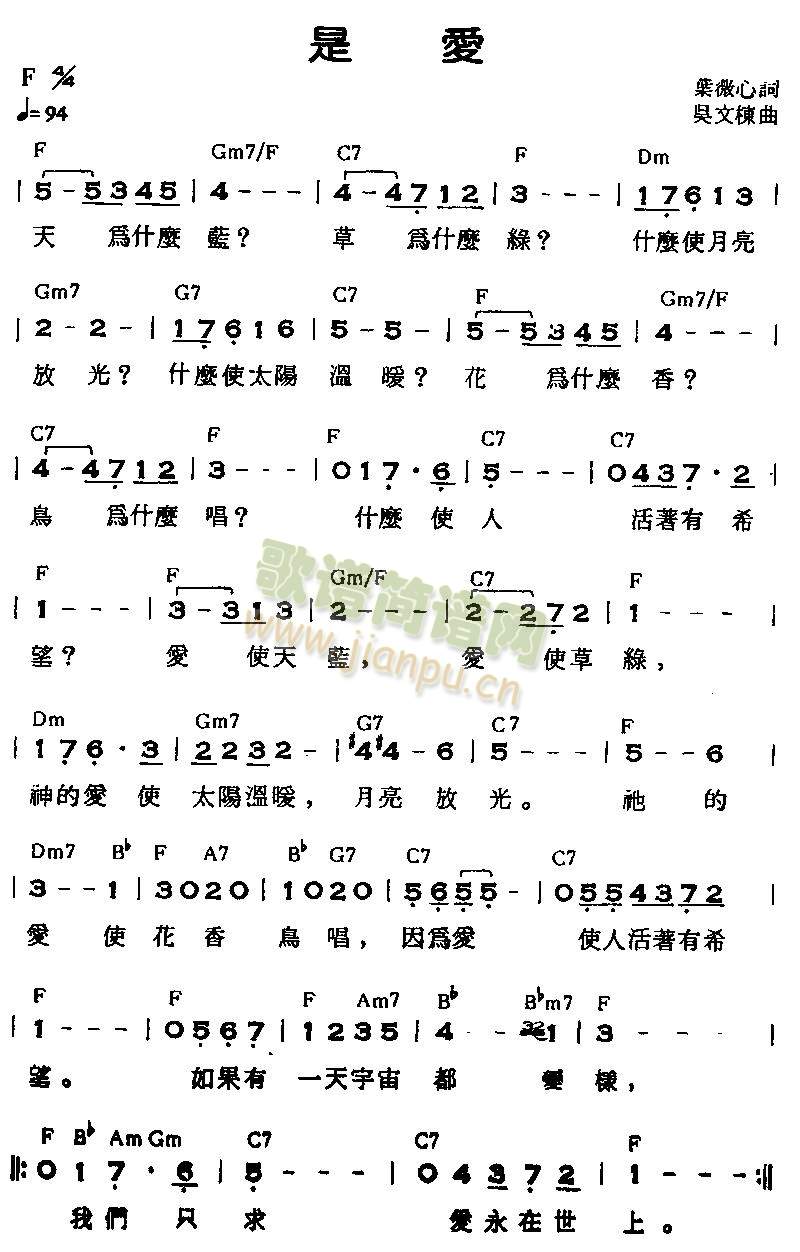 是 愛
F 4/4
葉薇心詞
♩=94
吳文棟曲
F Gm7/F C7 F Dm
| 5 - 5 3 4 5 | 4 - - - | 4 - 4 7 1 2 | 3 - - - | 1 7 6 1 3 |
天 爲什麼藍? 草 爲什麼綠? 什麼使月亮
Gm7 G7 C7 F Gm7/F
| 2 - 2 - | 1 7 6 1 6 | 5 - 5 - | 5 - 5 3 4 5 | 4 - - - |
放光? 什麼使太陽溫暖? 花 爲什麼香?
C7 F F C7 C7
| 4 - 4 7 1 2 | 3 - - - | 0 1 7 · 6 | 5 - - - | 0 4 3 7 · 2 |
鳥 爲什麼唱? 什麼使人 活著有希
F F Gm/F C7 F
| 1 - - - | 3 - 3 1 3 | 2 - - - | 2 - 2 7 2 | 1 - - - |
望? 愛 使天藍, 愛 使草綠,
歌谱简谱网
www.jianpu.cn
Dm Gm7 G7 C7 F
| 1 7 6 · 3 | 2 2 3 2 - | #4 #4 - 6 | 5 - - - | 5 - - 6 |
神的愛使 太陽溫暖, 月亮放光。 祂的
Dm7 B♭ F A7 B♭ G7 C7 C7
| 3 - - 1 | 3 0 2 0 | 1 0 2 0 | 5 6 5 5 - | 0 5 5 4 3 7 2 |
愛 使花香鳥唱, 因爲愛 使人活著有希
F F F Am7 B♭ B♭m7 F
| 1 - - - | 0 5 6 7 | 1 2 3 5 | 4 - - 32 1 | 3 - - - |
望。 如果有一天宇宙都 變樣,
F B♭ Am Gm C7 C7 F
‖: 0 1 7 · 6 | 5 - - - | 0 4 3 7 2 | 1 - - - :‖
我們只求 愛永在世上。